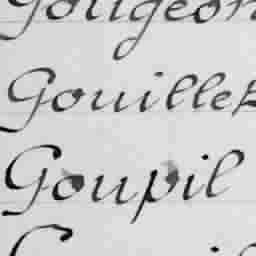 Gougeon
Gouilles
Goupil